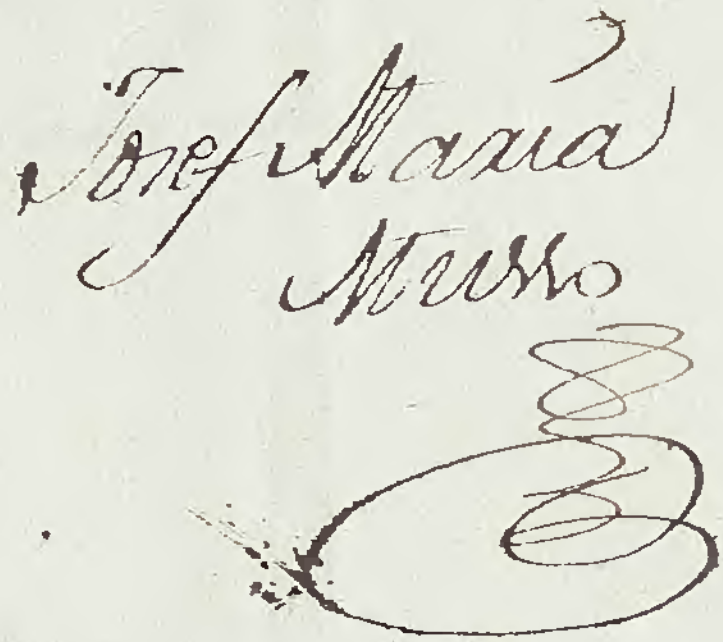 Josef María
Musso